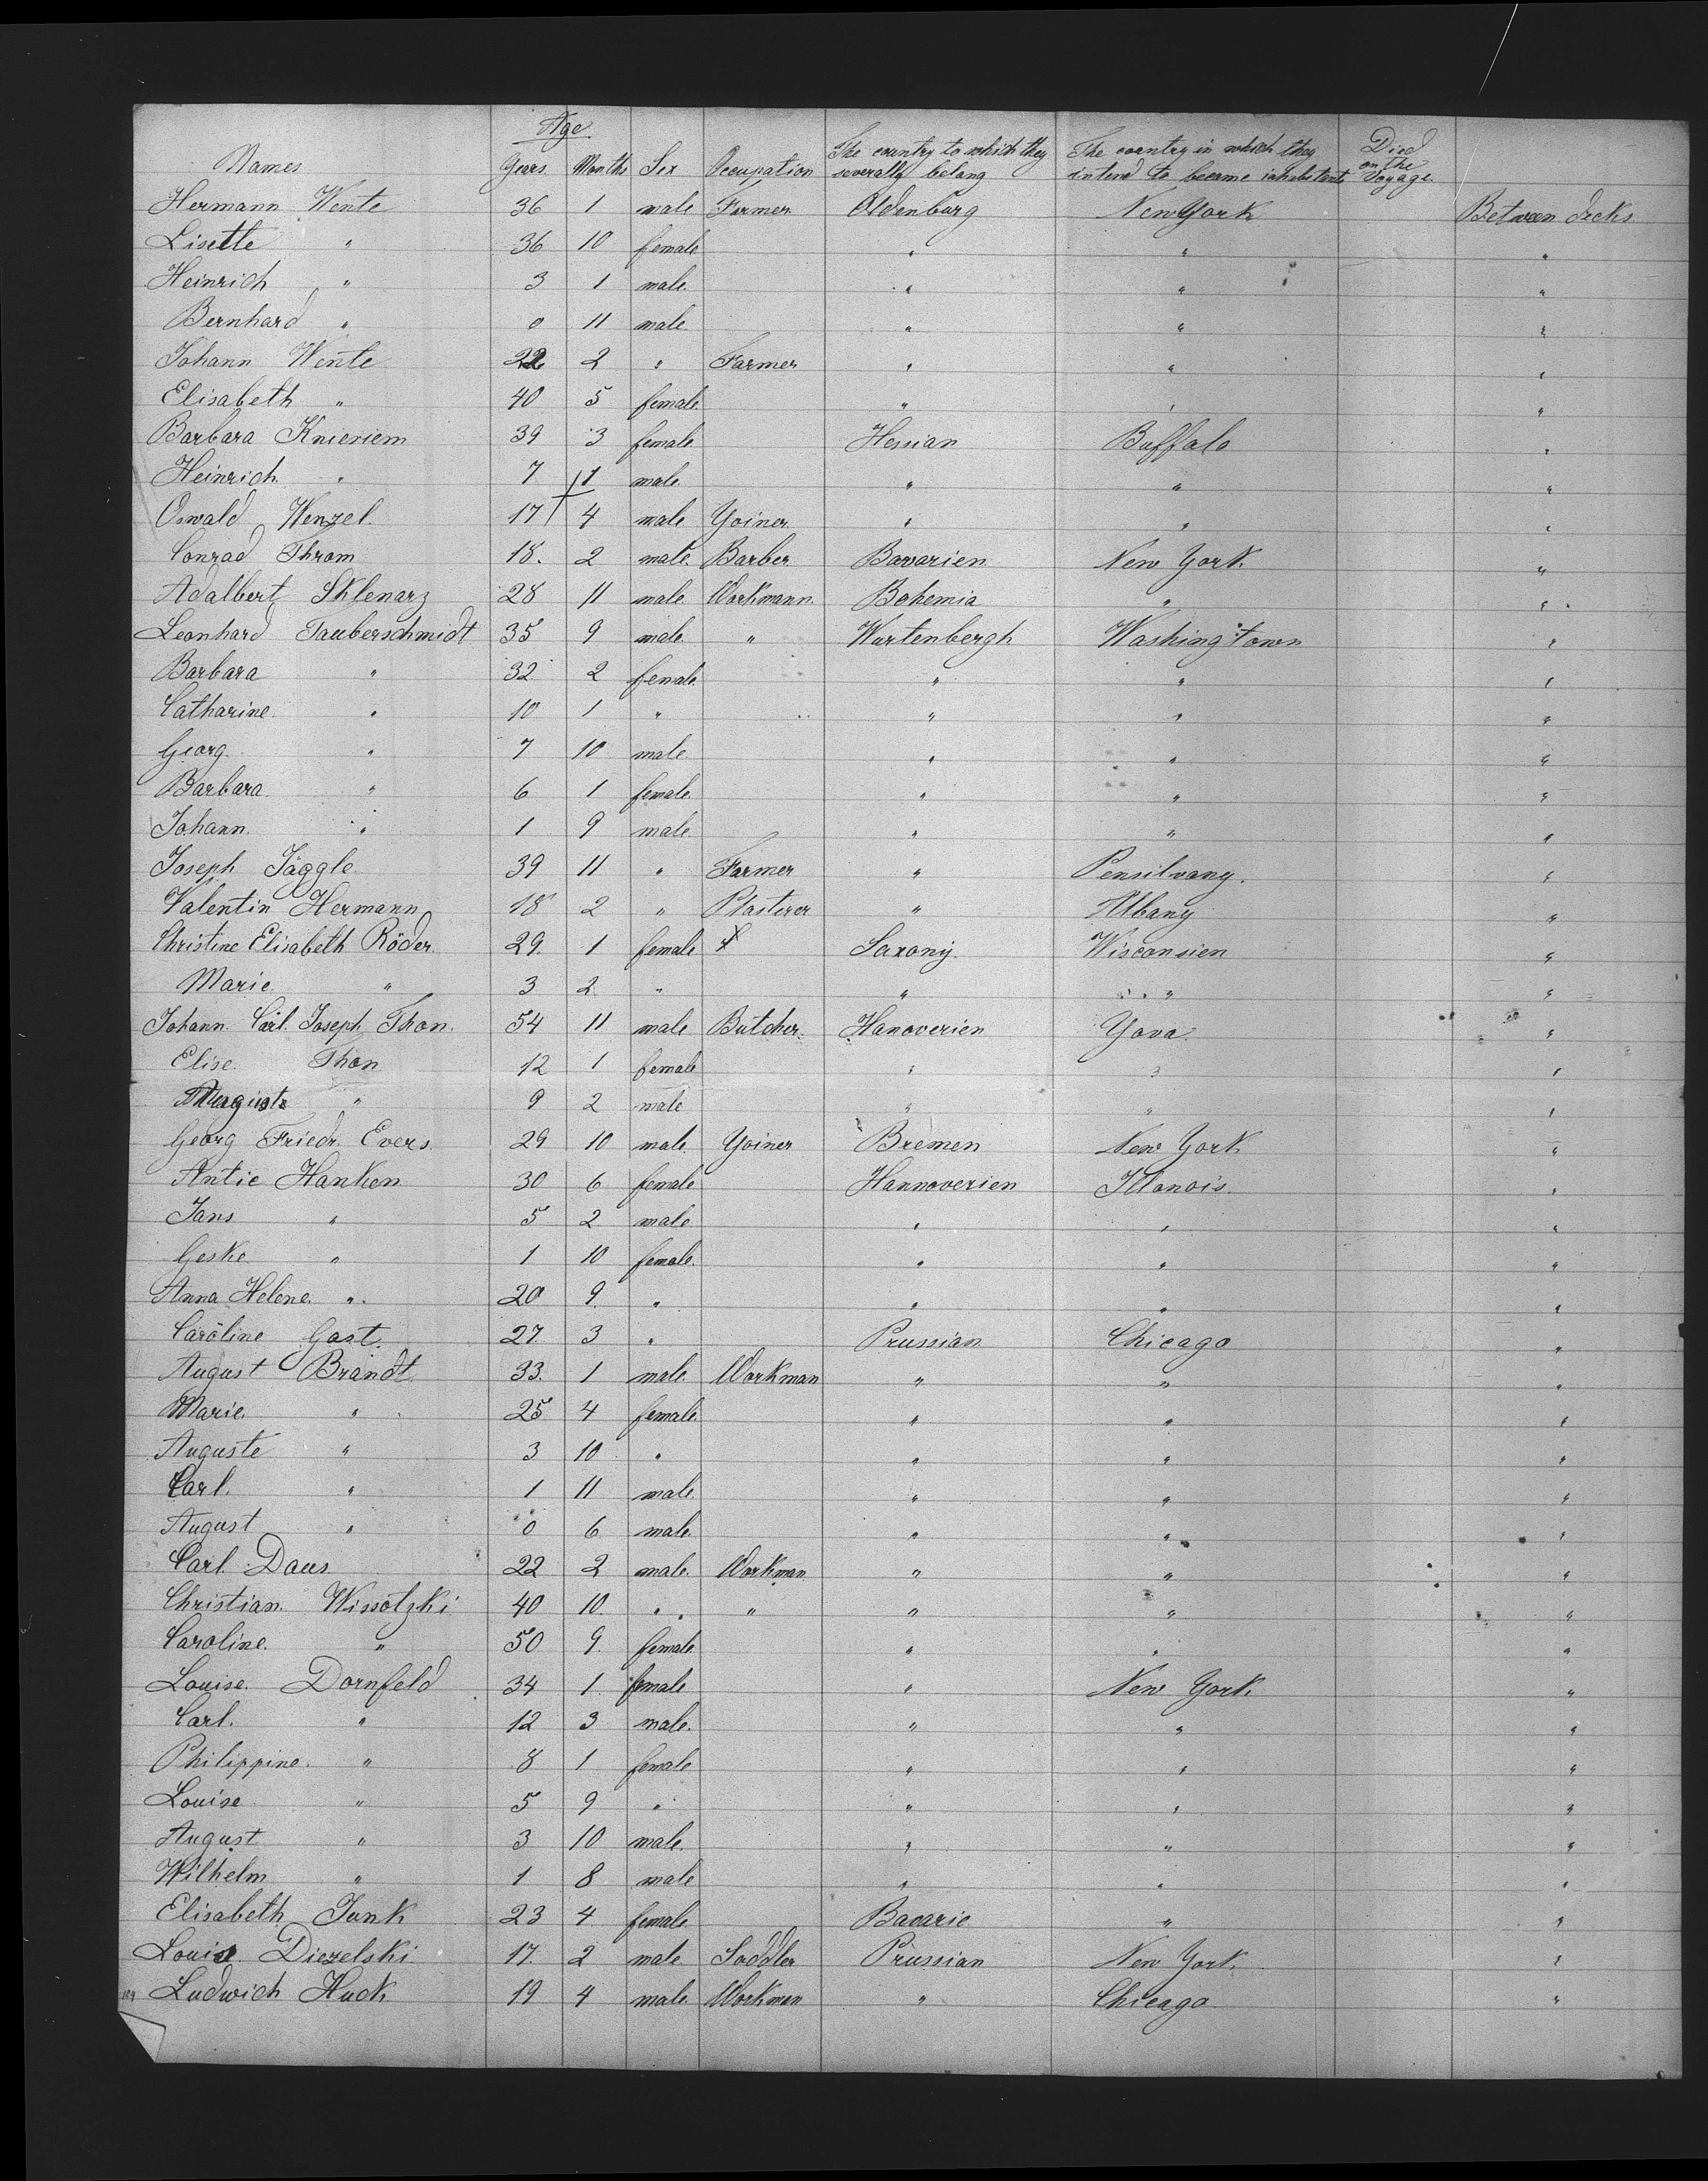 Age
Names Years Months Sex Occupation The country to which they severally belong The country in which they intend to become inhabitants Died on the Voyage
Hermann Wente 36 1 male Farmer Oldenburg New York Between decks
Lisette " 36 10 female " " "
Heinrich " 3 1 male " " "
Bernhard " 0 11 male " " "
Johann Wente 22 2 " Farmer " " "
Elisabeth " 40 5 female " " "
Barbara Knieriem 39 3 female Hessian Buffalo "
Heinrich " 7 1 male " " "
Oswald Wenzel 17 4 male Yoiner " " "
Conrad Throm 18. 2 male Barber Bavarien New York "
Adalbert Sklenarz 28 11 male Workmann Bohemia " "
Leonhard Tauberschmidt 35 9 male " Wurtenbergh Washingtown "
Barbara " 32 2 female " " "
Catharine " 10 1 " " " "
Georg " 7 10 male " " "
Barbara " 6 1 female " " "
Johann " 1 9 male " " "
Joseph Jäggle 39 11 " Farmer " Pensilvany. "
Valentin Hermann 18 2 " Plasterer " Albany "
Christine Elisabeth Röder 29. 1 female Saxony Wisconsien "
Marie " 3 2 " " " "
Johann Carl Joseph Thon. 54 11 male Butcher Hanoverien Yova "
Elise Thon 12 1 female " " "
Auguste " 9 2 male " " "
Georg Friedr. Evers 29 10 male Yoiner Bremen New York "
Antie Hanken 30 6 female Hannoverien Illonois "
Jans " 5 2 male " " "
Geske " 1 10 female " " "
Anna Helene " 20 9. " " " "
Caroline Gast. 27 3 " Prussian Chicago "
August Brandt 33. 1 male Workman " " "
Marie " 25 4 female " " "
Auguste " 3 10 " " " "
Carl. " 1 11 male " " "
August " 0 6 male " " "
Carl Daus 22 2 male. Workman " " "
Christian Wissotzki 40 10. " " " " "
Caroline. " 50 9. female " " "
Louise Dornfeld 34 1 female " New York "
Carl. " 12 3 male. " " "
Philippine. " 8 1 female " " "
Louise " 5 9 " " " "
August " 3 10 male. " " "
Wilhelm " 1 8 male " " "
Elisabeth Junk 23 4 female Bavarie " "
Louis Diezelski 17. 2 male Saddler Prussian New York "
Ludwich Huck 19 4 male Workman " Chicago "